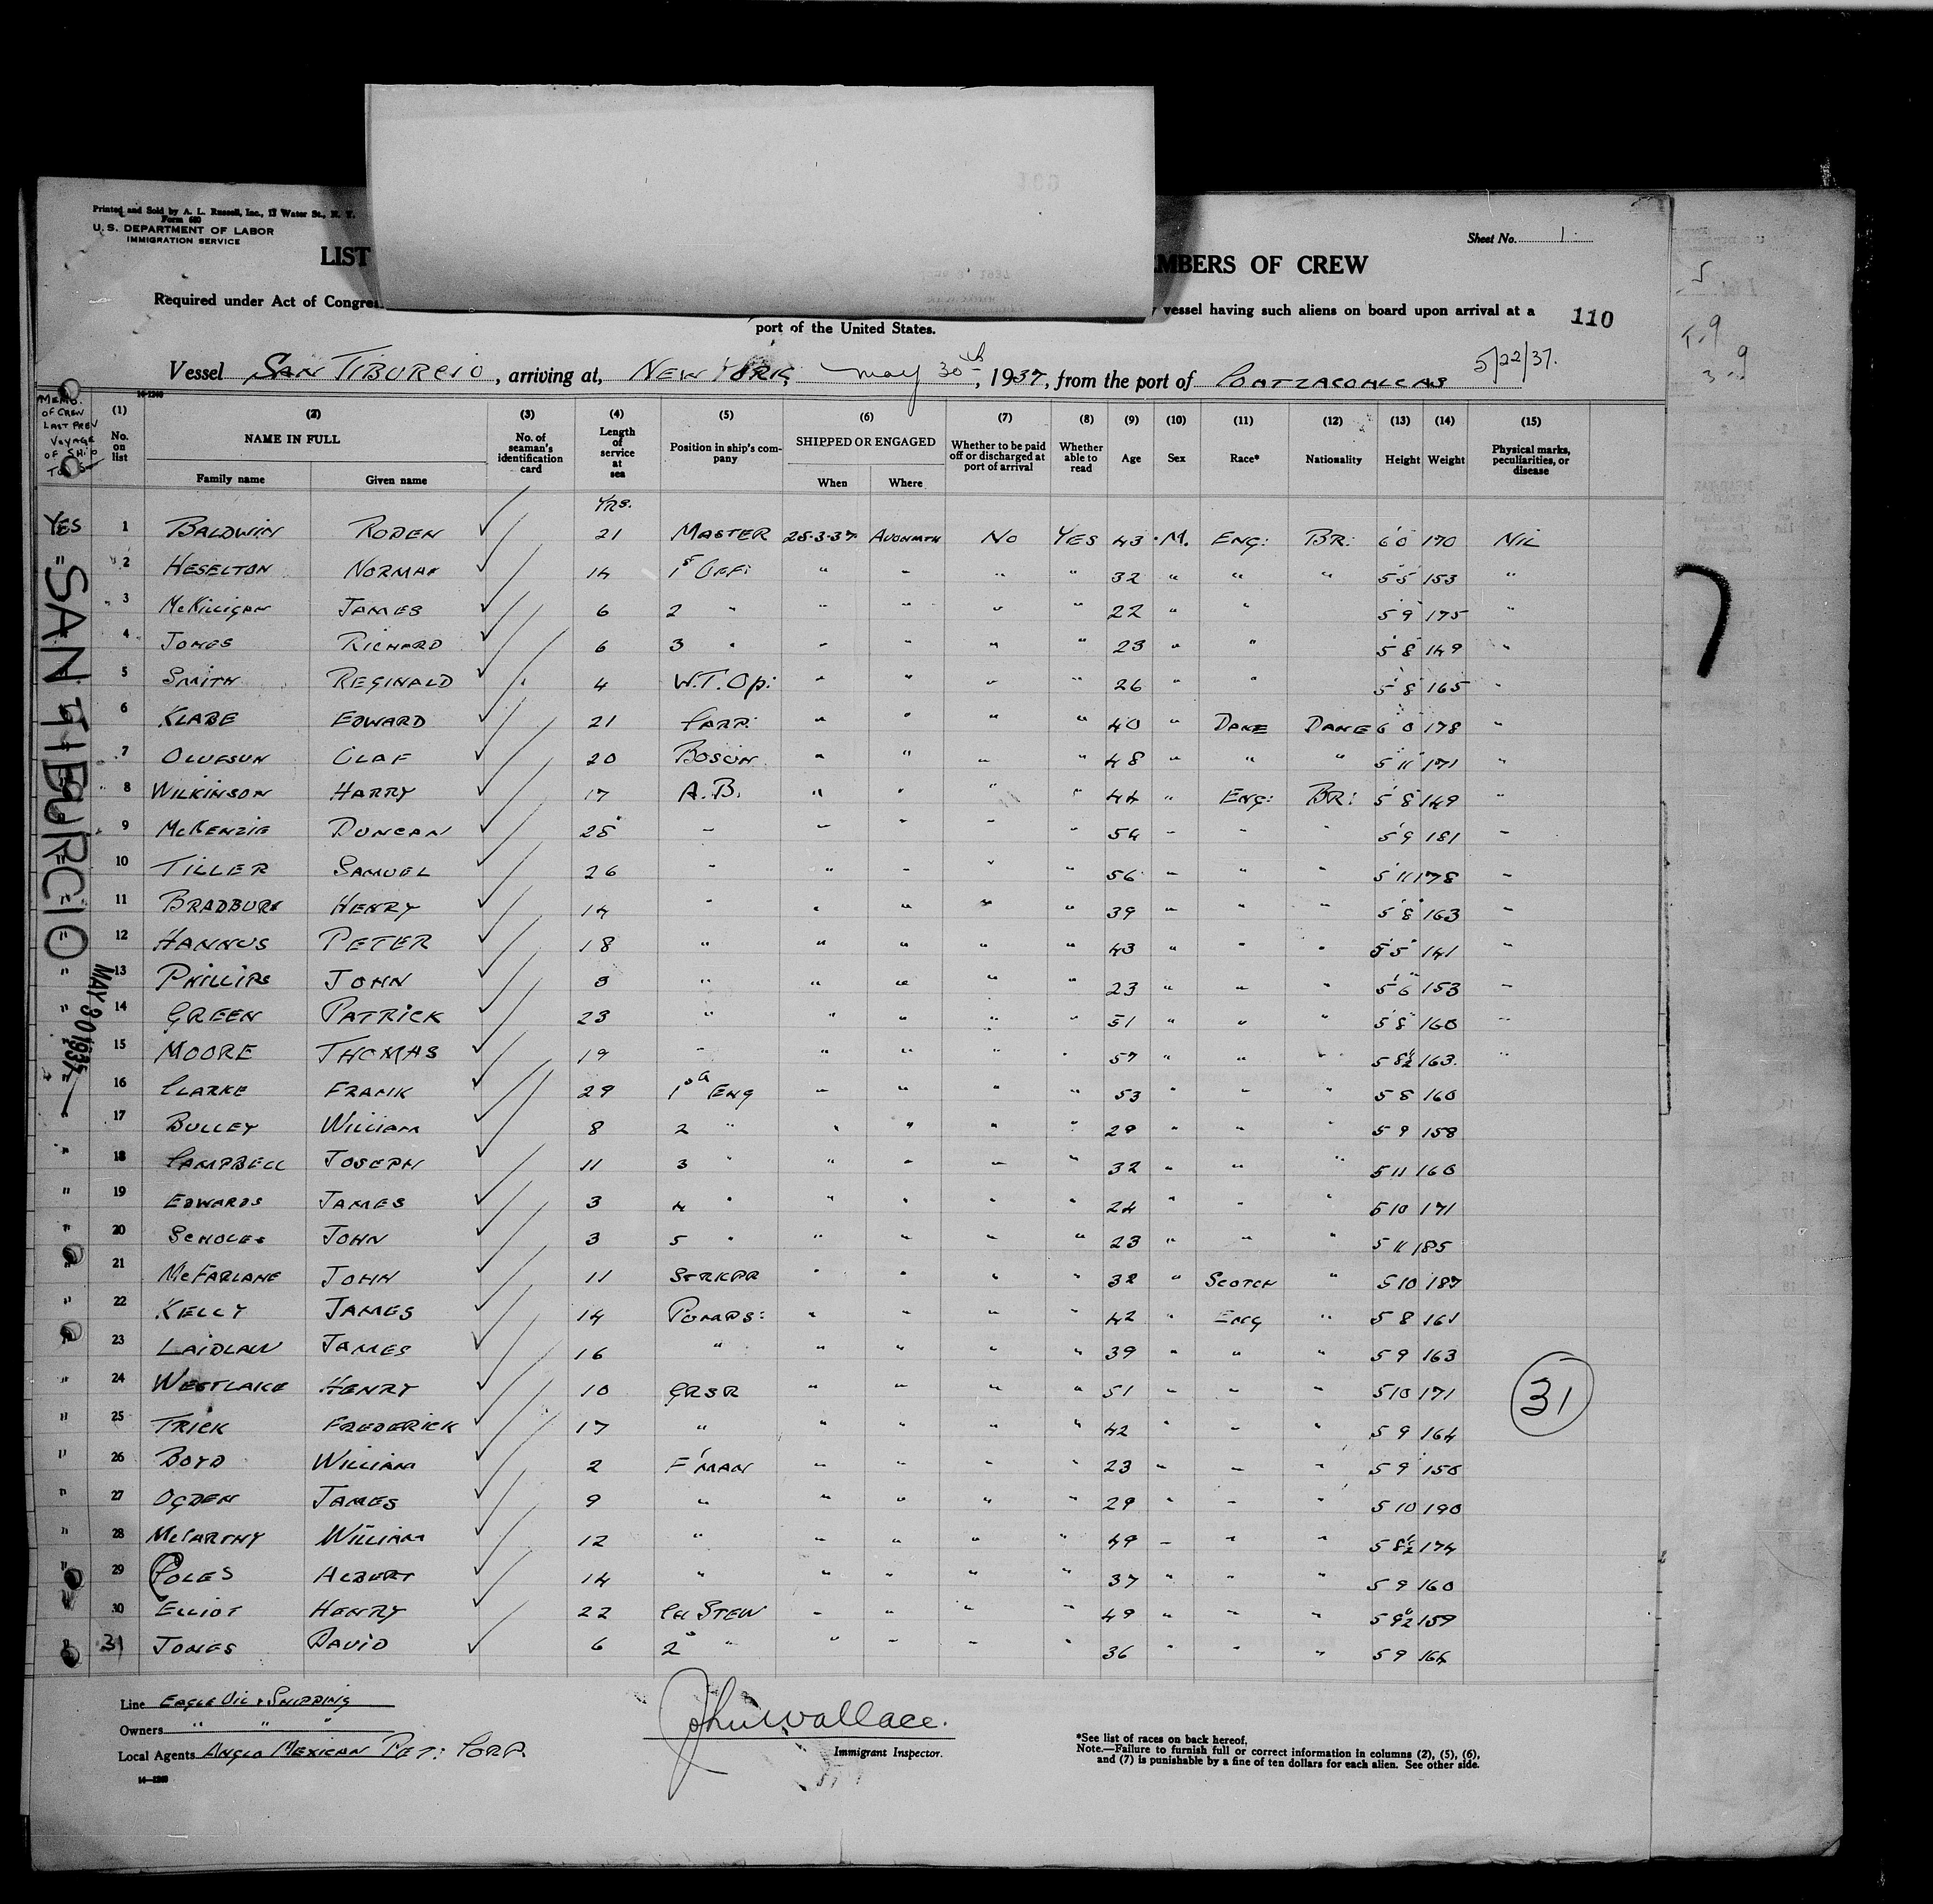 Printed and Sold by A. L. Russell, Inc., 17 Water St., N. Y.
Form 680
U. S. DEPARTMENT OF LABOR
IMMIGRATION SERVICE
Sheet No. 1
LIST MBERS OF CREW
Required under Act of Congre vessel having such aliens on board upon arrival at a
port of the United States.
110
5/22/37.
Vessel SAN TIBURCIO, arriving at, NEW YORK, May 30th, 1937, from the port of
14-1240
MEMO. OF CREW LAST PREV VOYAGE OF SHIP TO U.S.
(1) (2) (3) (4) (5) (6) (7) (8) (9) (10) (11) (12) (13) (14) (15)
No. on list NAME IN FULL No. of seaman's identification card Length of service at sea Position in ship's company SHIPPED OR ENGAGED Whether to be paid off or discharged at port of arrival Whether able to read Age Sex Race* Nationality Height Weight Physical marks, peculiarities, or disease
Family name Given name When Where
YRS.
YES 1 BALDWIN RODEN 21 MASTER 25-3-37 AVONMTH NO YES 43 M. ENG: BR: 6 0 170 NIL
" 2 HESELTON NORMAN 14 1s OFF: " " " " 32 " " " 5 5 153 "
" 3 McKilligan JAMES 6 2 " " " " " 22 " " 5 9 175 "
4 JONES RICHARD 6 3 " " " " " 23 " " 5 8 149 "
5 SMITH REGINALD 4 W.T. Op: " " " " 26 " " 5 8 165 "
6 KLABE EDWARD 21 CARP: " " " 40 " DANE DANE 6 0 178 "
7 OLUFSUN OLAF 20 BOSUN " " " " 48 " " " 5 11 171 "
" 8 WILKINSON HARRY 17 A.B. " " " " 44 " ENG: BR: 5 8 149 "
" 9 McKENZIE DUNCAN 25 " " " " " 54 " " " 5 9 181 "
10 TILLER SAMUEL 26 " " " " " 56 " " " 5 11 178 "
11 BRADBURN HENRY 14 " " " " " 39 " " " 5 8 163 "
12 HANNUS PETER 18 " " " " " 43 " " " 5 5 141 "
" 13 PHILLIPS JOHN 8 " " " " 23 " " " 5 6 153 "
" 14 GREEN PATRICK 23 " " " " " 51 " " " 5 8 160 "
" 15 MOORE THOMAS 19 " " " " " 57 " " " 5 8½ 163. "
16 CLARKE FRANK 29 1st ENG " " " " 53 " " " 5 8 160
" 17 BULLEY William 8 2 " " " " " 29 " " " 5 9 158
" 18 CAMPBELL JOSEPH 11 3 " " " " " 32 " " " 5 11 160
" 19 EDWARDS JAMES 3 4 " " " " " 24 " " " 5 10 171
" 20 SCHOLES JOHN 3 5 " " " " " 23 " " " 5 11 185
" 21 McFARLANE JOHN 11 STRKPR " " " " 32 " SCOTCH " 5 10 187
" 22 KELLY JAMES 14 PUMPS: " " " " 42 " ENG " 5 8 161
" 23 LAIDLAW JAMES 16 " " " " " 39 " " " 5 9 163
" 24 WESTLAKE HENRY 10 GRSR " " " " 51 " " " 5 10 171
" 25 TRICK FREDERICK 17 " " " " " 42 " " " 5 9 164
" 26 BOYD William 2 F'MAN " " " " 23 " " " 5 9 150
" 27 OGDEN JAMES 9 " " " " " 29 " " " 5 10 190
" 28 McCARTHY William 12 " " " " " 49 " " " 5 8½ 174
" 29 COLES ALBERT 14 " " " " " 37 " " " 5 9 160
" 30 ELLIOT HENRY 22 CH STEW " " " " 49 " " " 5 9½ 159
" 31 JONES DAVID 6 2 " " " " " 36 " " " 5 9 164
SAN TIBURCIO
MAY 30 1937
31
Line EAGLE OIL & SHIPPING
Owners " " "
Local Agents ANGLO MEXICAN PET: CORP.
14-1240
John Wallace.
Immigrant Inspector.
*See list of races on back hereof.
Note.—Failure to furnish full or correct information in columns (2), (5), (6),
and (7) is punishable by a fine of ten dollars for each alien. See other side.